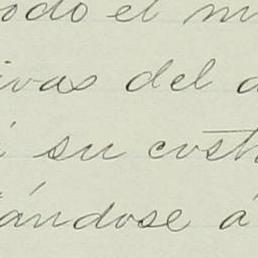 odo el m
ivas del a
i su costu
ándose á